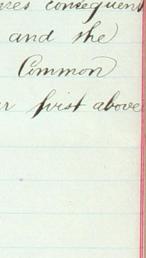 consequent
and the
Common
first above